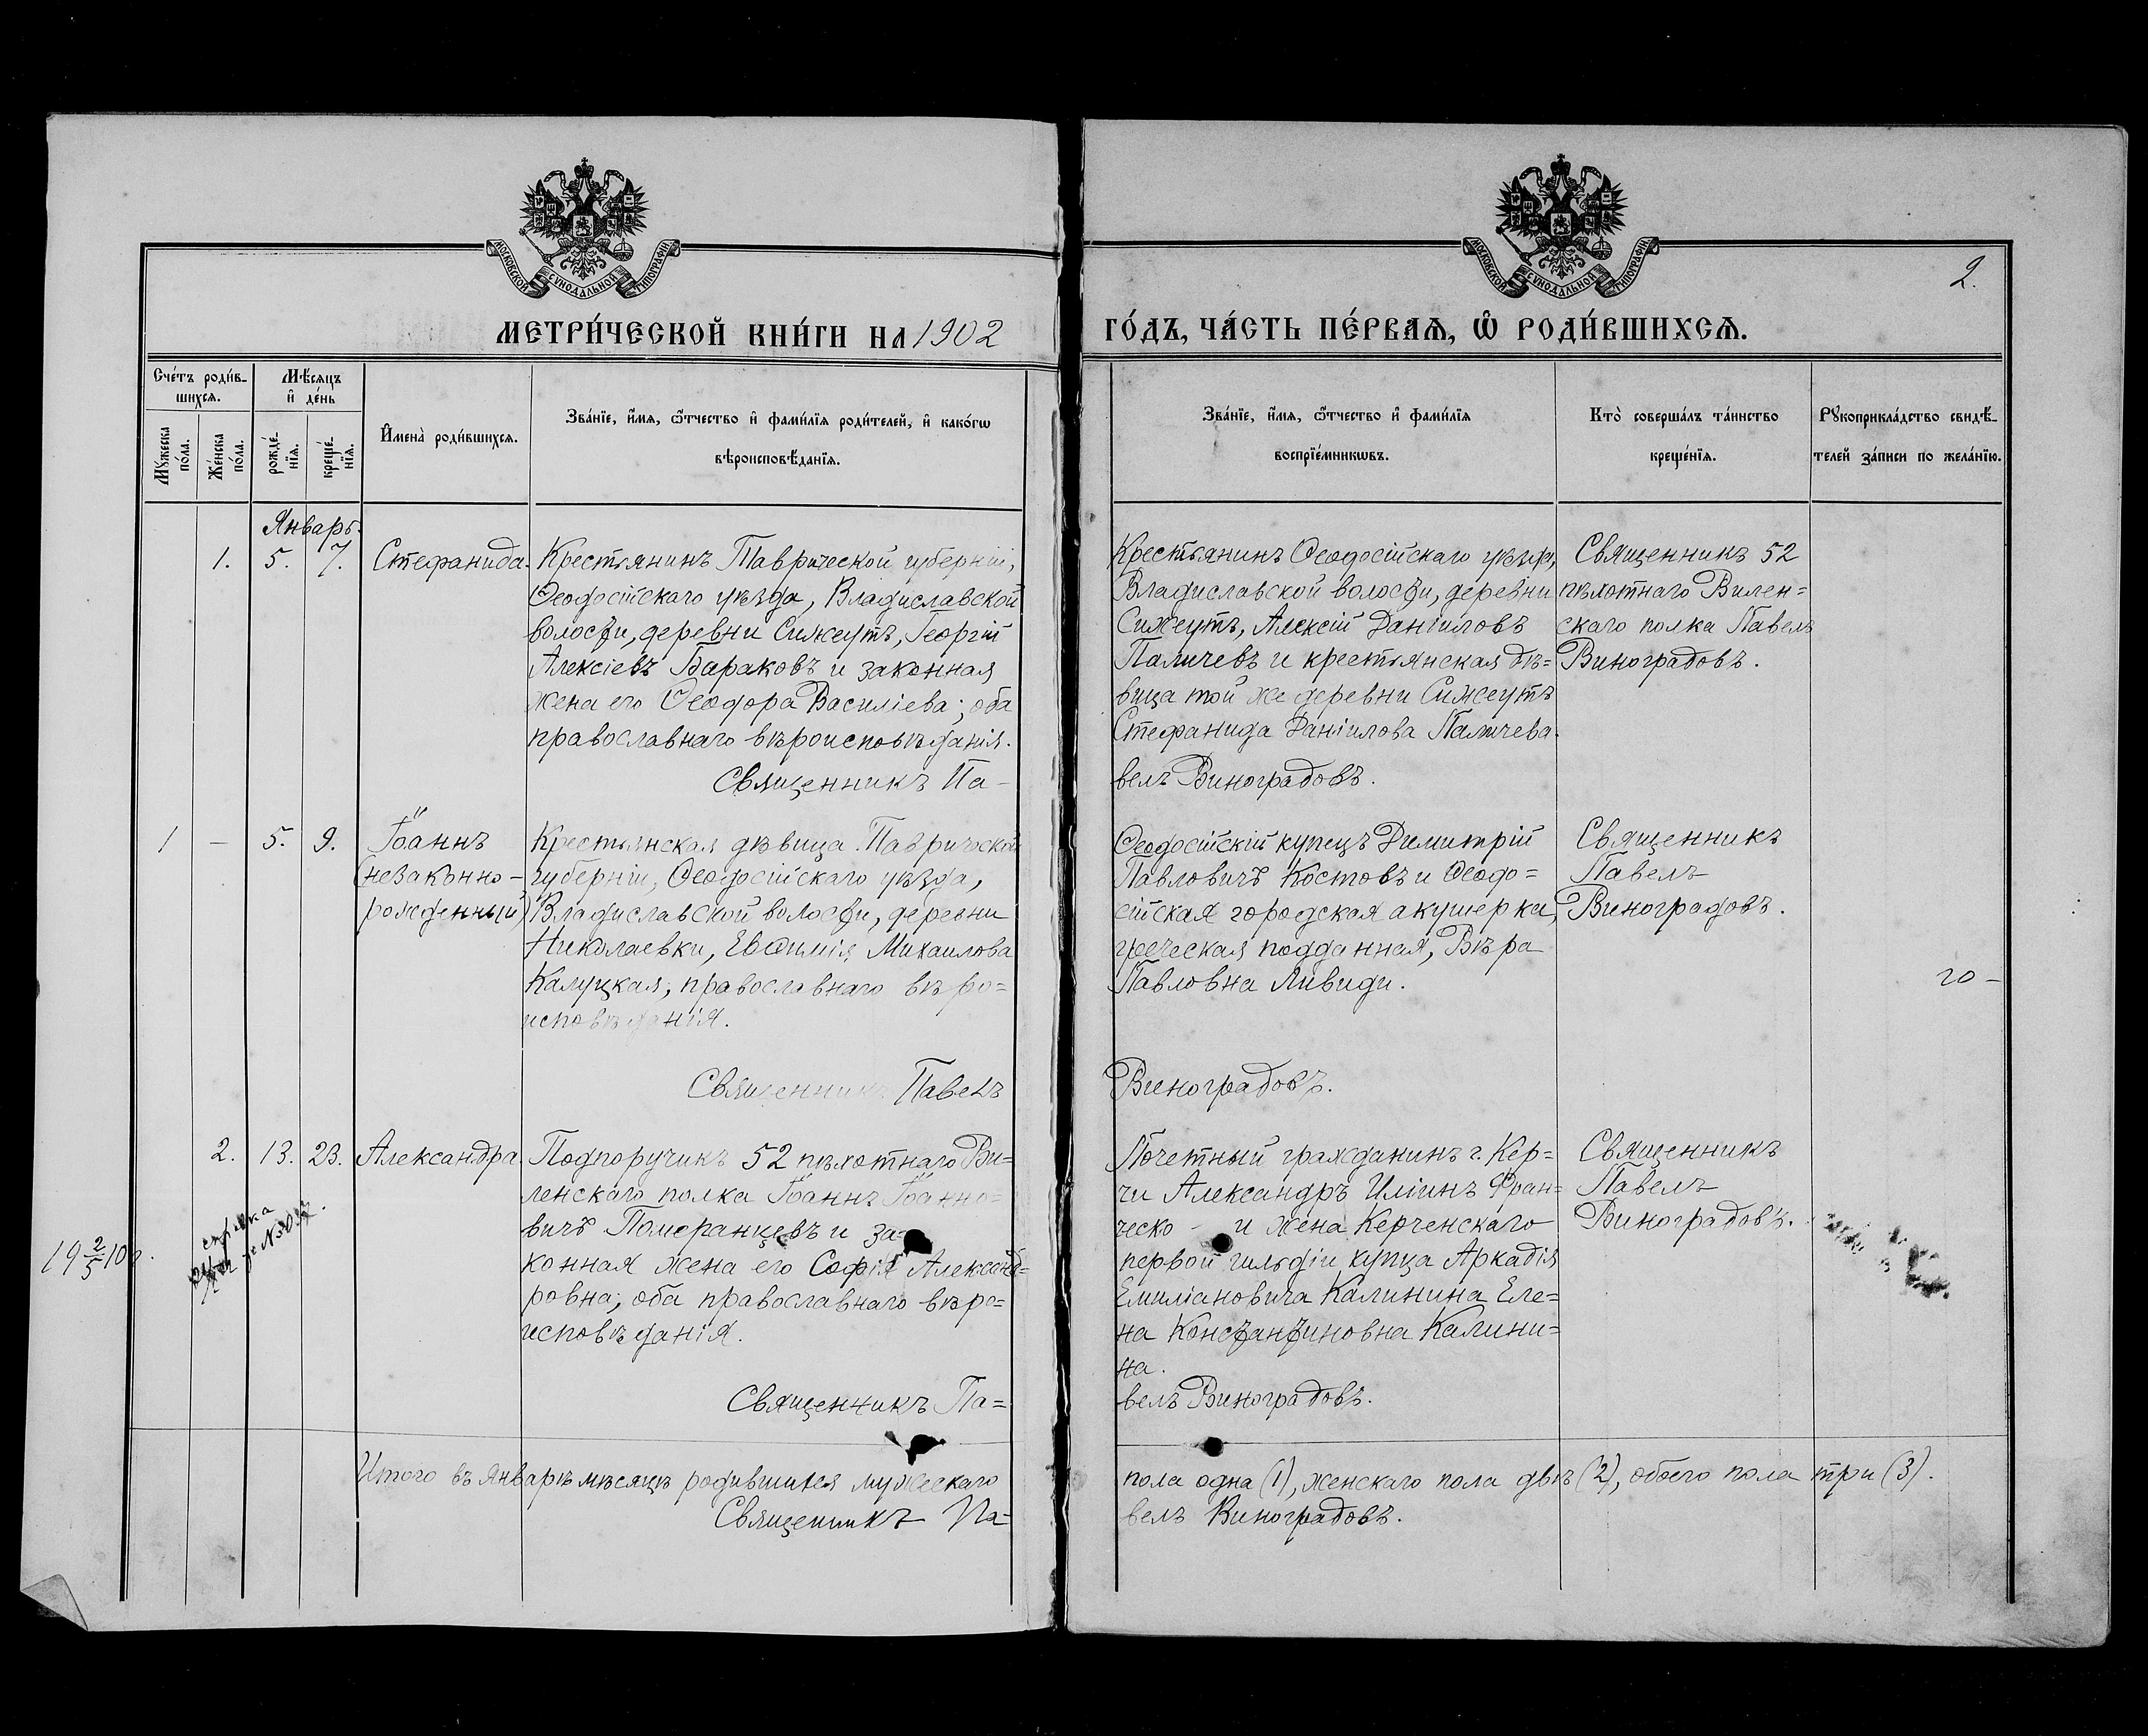 МОСКОВСКОЙ СѴНОДАЛЬНОЙ ТИПОГРАФІИ
МОСКОВСКОЙ СѴНОДАЛЬНОЙ ТИПОГРАФІИ
2.
МЕТРИ́ЧЕСКОЙ КНИ́ГИ НА 1902
ГО́ДЪ, ЧА́СТЬ ПЕ́РВАѦ, Ѽ РОДИ́ВШИХСѦ.
Сче́тъ роди́в-
шихсѧ.
Мѣ́сяцъ
и҆ де́нь
Мꙋ́жеска по́ла.
Же́нска по́ла.
рожде́-
нїѧ.
креще́-
нїѧ.
И҆мена̀ роди́вшихсѧ.
Зва́нїе, и҆́мѧ, ѻ҆́тчество и҆ фами́лїѧ роди́телей, и҆ како́гѡ
вѣроисповѣ́данїѧ.
Зва́нїе, и҆́мѧ, ѻ҆́тчество и҆ фами́лїѧ
воспрїе́мникѡвъ.
Кто̀ соверша́лъ та́инство
креще́нїѧ.
Рꙋкоприкла́дство свидѣ́-
телей за́писи по жела́нїю.
Январь.
1. 5. 7. Стефанида.
Крестьянинъ Таврической губерніи,
Ѳеодосійскаго уѣзда, Владиславской
волости, деревни Сижеутъ, Георгій
Алексіевъ Бараковъ и законная
жена его Ѳеодора Василіева; оба
православнаго вѣроисповѣданія.
Священникъ Па-
Крестьянинъ Ѳеодосійскаго уѣзда,
Владиславской волости, деревни
Сижеутъ, Алексій Даніиловъ
Паличевъ и крестьянская дѣ=
вица той же деревни Сижеутъ
Стефанида Даніилова Паличева.
велъ Виноградовъ.
Священникъ 52
пѣхотнаго Вилен=
скаго полка Павелъ
Виноградовъ.
1 — 5. 9. Іоаннъ
(незаконно-
рожденный)
Крестьянская дѣвица Таврической
губерніи, Ѳеодосійскаго уѣзда,
Владиславской волости, деревни
Николаевки, Евѳимія Михаилова
Калуцкая, православнаго вѣро=
исповѣданія.
Священникъ Павелъ
Ѳеодосійскій купецъ Димитрій
Павловичъ Костовъ и Ѳеодо=
сійская городская акушерка,
греческая подданная, Вѣра
Павловна Ливиди.
Виноградовъ.
Священникъ
Павелъ
Виноградовъ.
20 -
2. 13. 23. Александра.
Подпоручикъ 52 пѣхотнаго Ви=
ленскаго полка Іоаннъ Іоанно=
вичъ Померанцевъ и за=
конная жена его Софія Александ=
ровна; оба православнаго вѣро=
исповѣданія.
Священникъ Па=
19 2/5 10 г.
справка
Почетный гражданинъ г. Кер=
чи Александръ Иліинъ Фран=
ческо - и жена Керченскаго
первой гильдіи купца Аркадія
Емиліановича Калинина Еле=
на Константиновна Калини=
на.
велъ Виноградовъ.
Священникъ
Павелъ
Виноградовъ.
Итого въ Январѣ мѣсяцѣ родившихся мужескаго
Священникъ Па-
пола одна (1), женскаго пола двѣ (2), обоего пола три (3).
велъ Виноградовъ.